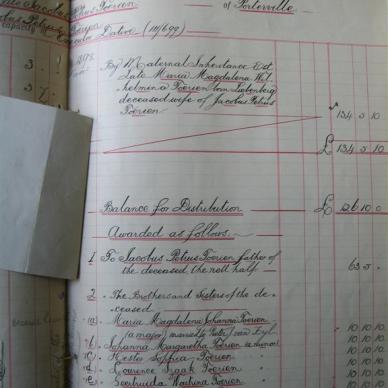 of Porterville.
Dative (111/699)
By Maternal Inheritance Est.
Late Maria Magdalena Wil
helmina Toerien born Liebenberg
deceased wife of Jacobus Petrus
Toerien
134 5 10
£ 134 5 10
Balance for Distribution £ 126 10 0
Awarded as follows.
1 To Jacobus Petrus Toerien father of
the deceased the nett half 63 5 .
2 . The Brothers and Sisters of the de
ceased
(a) Maria Magdalena Johanna Toerien
(a major) married to van Zyl 10 10 10
(b) Johanna Margaretha Toerien a minor 10 10 10
(c) Hester Sophia Toerien 10 10 10
(d) Lourence Izaak Toerien 10 10 10
(e) Toerien 10 10 10